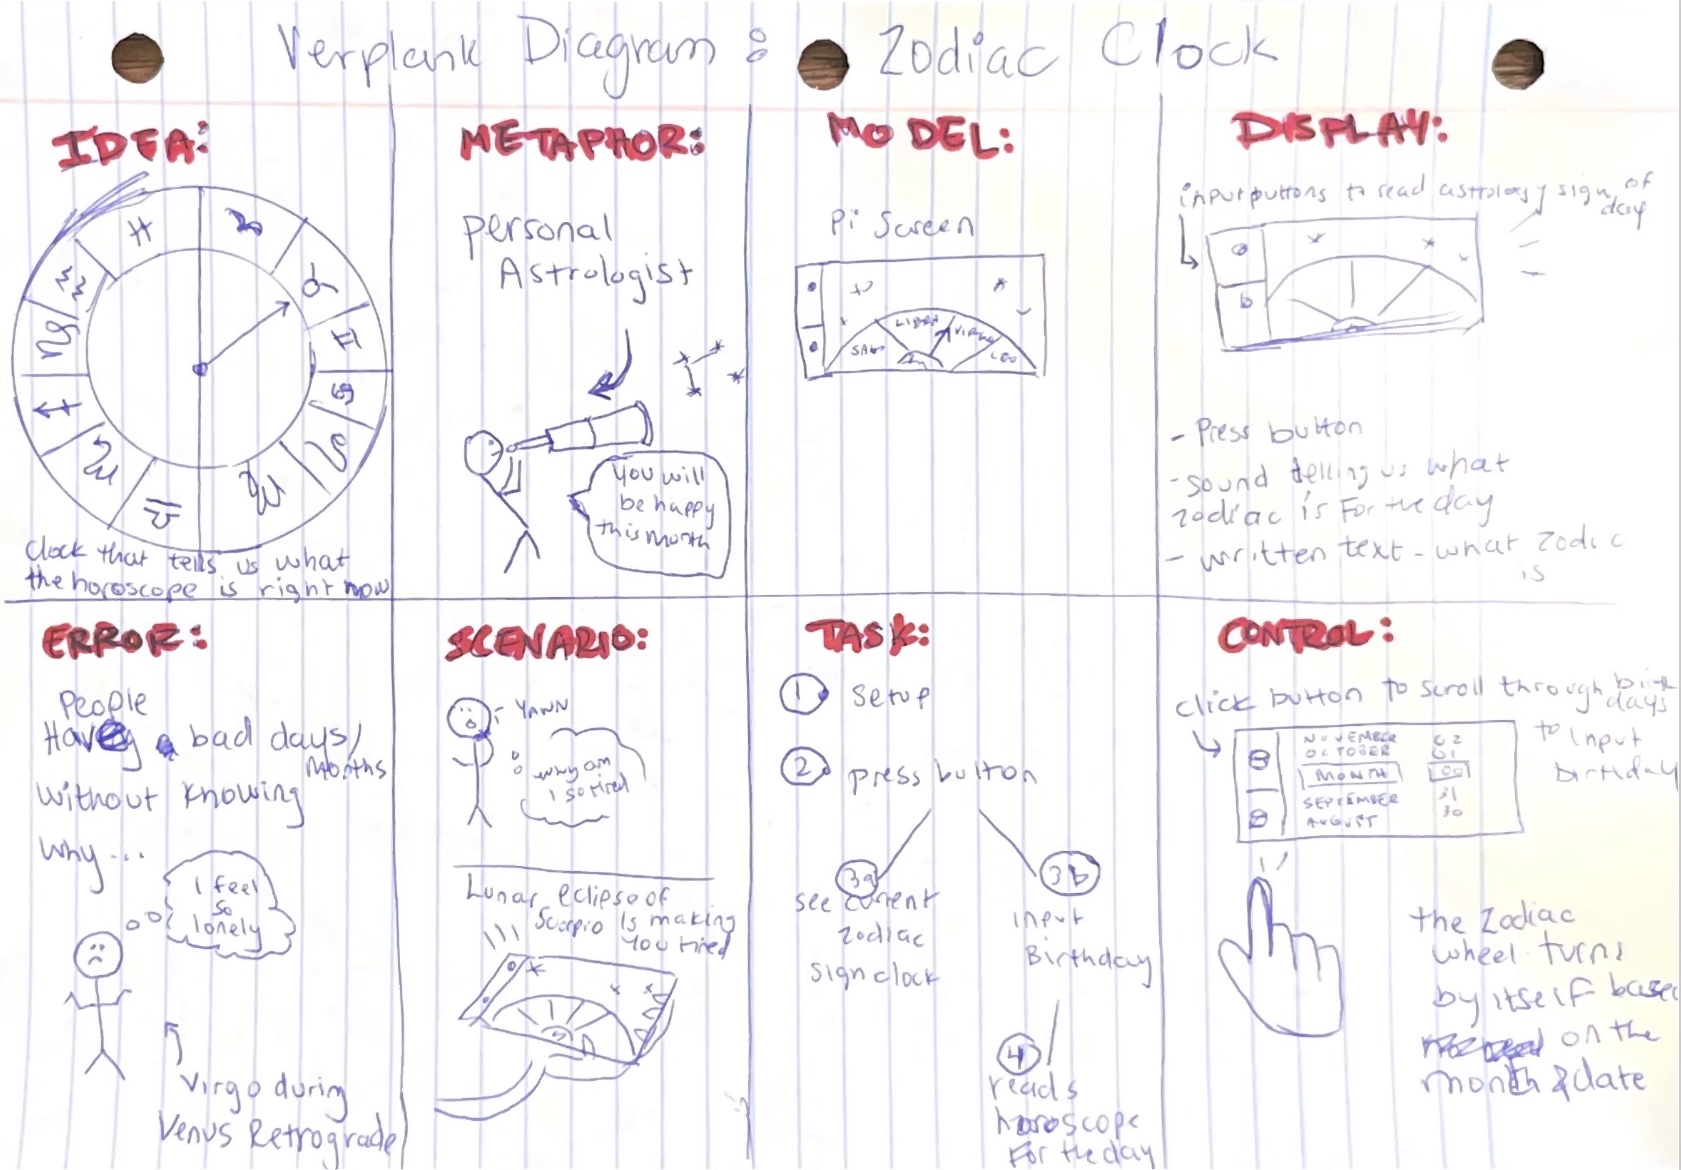 Verplank Diagram : Zodiac Clock
IDEA:
Clock that tells us what
the horoscope is right now
METAPHOR:
personal
Astrologist
You will
be happy
this month
MODEL:
Pi Screen
LIBRA
VIRGO
LEO
DISPLAY:
input buttons to read astrology sign of
day
- Press button
- sound telling us what
zodiac is for the day
- written text - what zodic
is
ERROR:
People
Having bad days/
months
without knowing
why...
I feel
so
lonely
Virgo during
Venus Retrograde
SCENARIO:
YAWN
why am
I so tired
Lunar eclipse of
Scorpio is making
you tired
TASK:
1 setup
2 press button
3a
see current
zodiac
sign clock
3b
input
Birthday
4
reads
horoscope
for the day
CONTROL:
click button to scroll through birth
days
to input
birthday
NOVEMBER 02
OCTOBER 01
MONTH 00
SEPTEMBER 31
AUGUST 30
the Zodiac
wheel turns
by itself based
on the
month & date